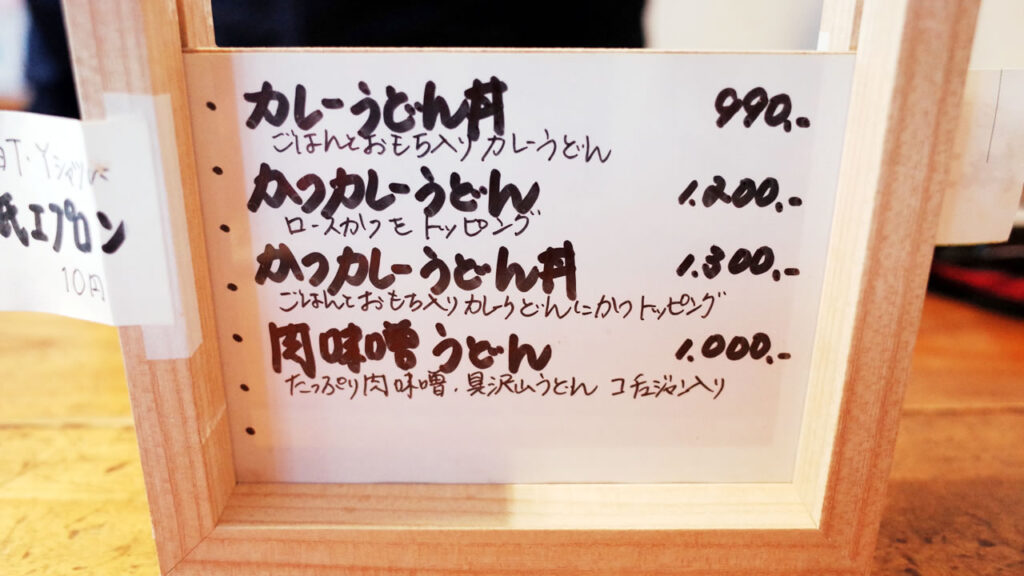 カレーうどん丼 990,-
ごはんとおもち入りカレーうどん
かつカレーうどん 1,200,-
ロースかつをトッピング
かつカレーうどん丼 1,300,-
ごはんとおもち入りカレーうどんにかつトッピング
肉味噌うどん 1,000,-
たっぷり肉味噌・具沢山うどん コチュジャン入り
T・Yシャツ
紙エプロン
10円